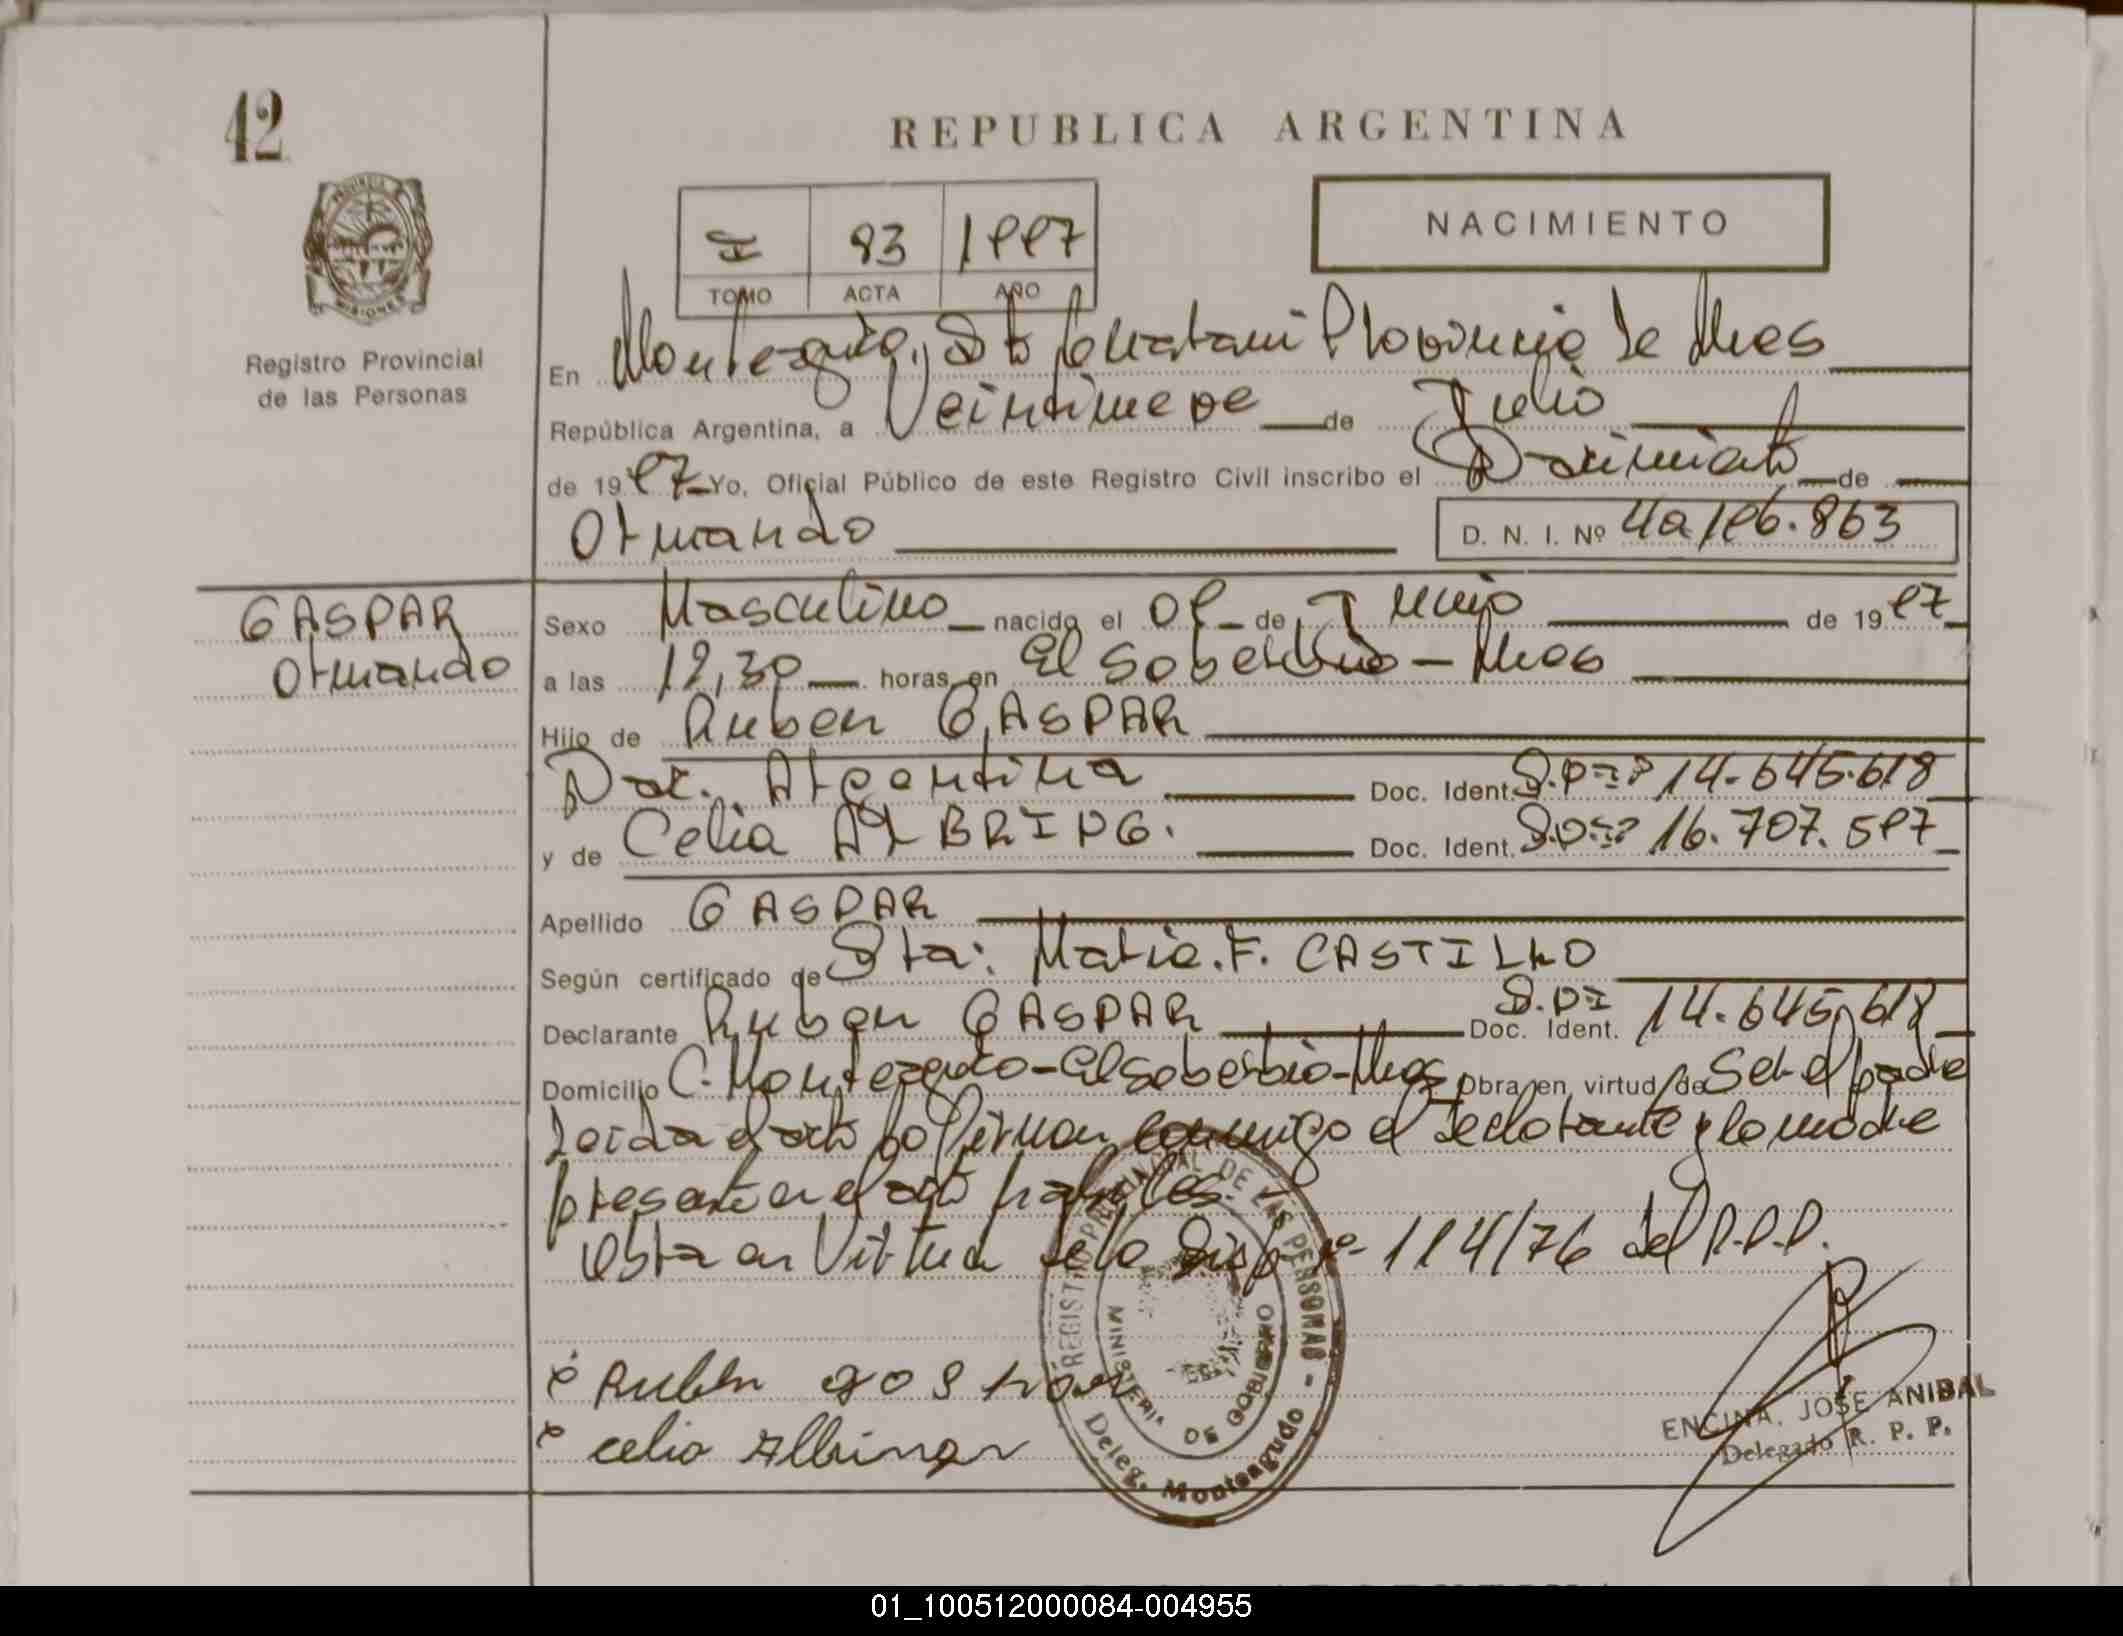 42
REPUBLICA ARGENTINA
PROVINCIA
MISIONES
Registro Provincial
de las Personas
I 83 1997
TOMO ACTA AÑO
NACIMIENTO
En Monteagudo, Dto Guarani Provincia de Mnes
República Argentina, a Veintinueve de Julio
de 1997 Yo, Oficial Público de este Registro Civil inscribo el Nacimiento de
Ormando D. N. I. Nº 40.196.863
GASPAR
Ormando
Sexo Masculino nacido el 09 de Junio de 1997
a las 12,30 horas en El Soberbio - Mnes
Hijo de Ruben GASPAR
Nac. Argentina Doc. Ident. D.N.I.Nº 14.645.618
y de Celia ALBRING. Doc. Ident. D.N.I.Nº 16.707.597
Apellido GASPAR
Según certificado de Sta: Maria.F. CASTILLO
Declarante Ruben GASPAR Doc. Ident. D.NI 14.645.618
Domicilio C. Monteagudo-El Soberbio-Mnes Obra en virtud de Ser el padre
Leida el acta la firman conmigo el declarante y la madre
presente en el acto habiles.
Obra en Virtud de la Disp nº 114/76 del R.P.P.
Ruben gaspar
celia Albring
REGISTRO PROVINCIAL DE LAS PERSONAS -
MINISTERIO DE GOBIERNO
Deleg. Monteagudo
ENCINA, JOSE ANIBAL
Delegado R. P. P.
01_100512000084-004955